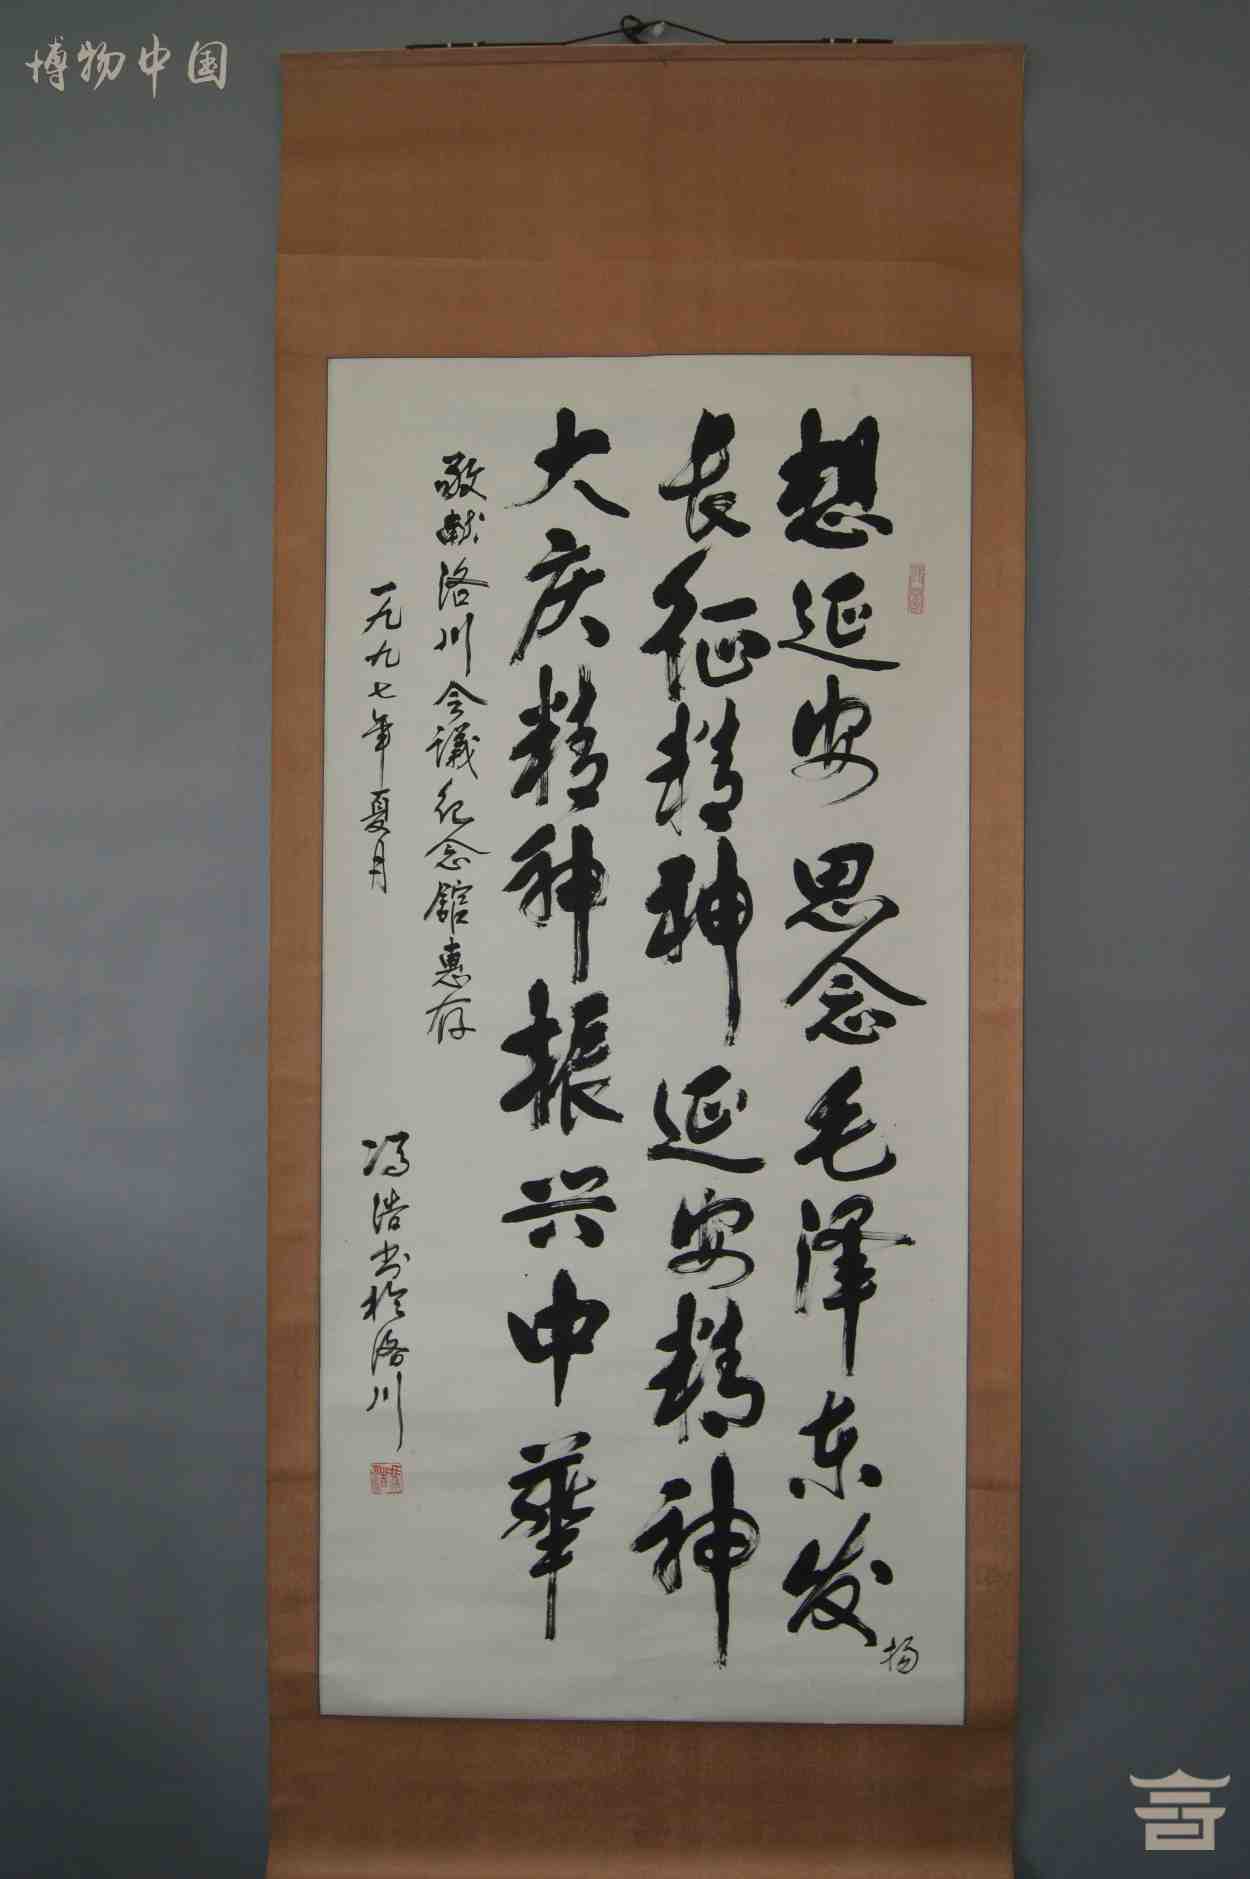 博物中国
想延安思念毛泽东发扬
长征精神延安精神
大庆精神振兴中華
敬献洛川会議纪念館惠存
一九九七年夏月
冯浩书於洛川